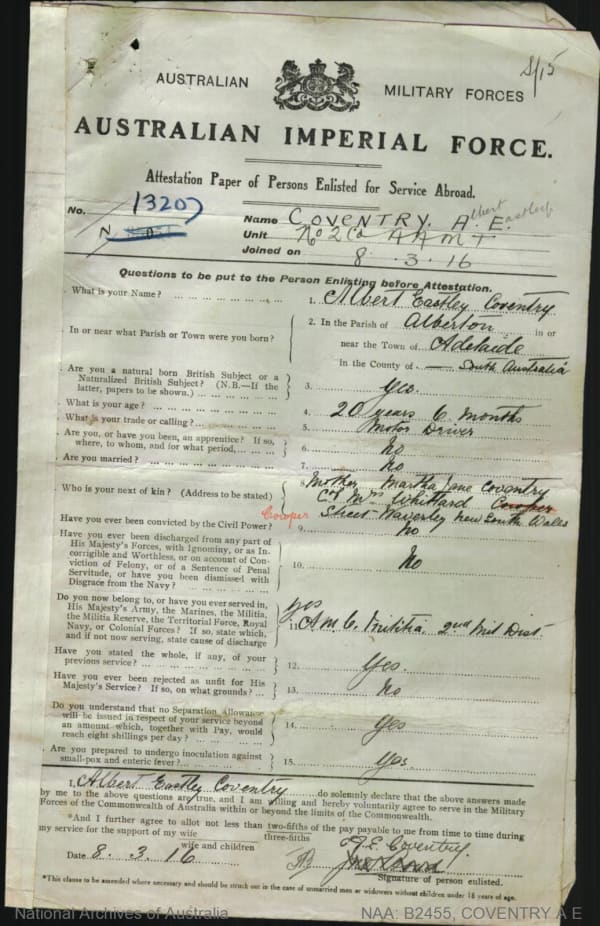 S/15
AUSTRALIAN MILITARY FORCES
AUSTRALIAN IMPERIAL FORCE.
Attestation Paper of Persons Enlisted for Service Abroad.
No. 13207
N
Name COVENTRY, Albert E. Eastley
Unit No 2 Co A A M T
Joined on 8 . 3 . 16
Questions to be put to the Person Enlisting before Attestation.
What is your Name? ... 1. Albert Eastley Coventry
In or near what Parish or Town were you born? 2. In the Parish of Alberton in or
near the Town of Adelaide
in the County of — South Australia
Are you a natural born British Subject or a
Naturalized British Subject? (N.B.—If the
latter, papers to be shown.) 3. Yes.
What is your age? 4. 20 years 6 months
What is your trade or calling? 5. Motor Driver
Are you, or have you been, an apprentice? If so,
where, to whom, and for what period, 6. No
Are you married? 7. No
Who is your next of kin? (Address to be stated) 8. Mother Martha Jane Coventry
C/o Mrs Whittard Cooper
Cooper Street Waverley New South Wales
Have you ever been convicted by the Civil Power? 9. No
Have you ever been discharged from any part of
His Majesty's Forces, with Ignominy, or as In-
corrigible and Worthless, or on account of Con-
viction of Felony, or of a Sentence of Penal
Servitude, or have you been dismissed with
Disgrace from the Navy? 10. No
Do you now belong to, or have you ever served in,
His Majesty's Army, the Marines, the Militia,
the Militia Reserve, the Territorial Force, Royal
Navy, or Colonial Forces? If so, state which,
and if not now serving, state cause of discharge
yes
11. A M C Militia 2nd Mil Dist
Have you stated the whole, if any, of your
previous service? 12. Yes
Have you ever been rejected as unfit for His
Majesty's Service? If so, on what grounds? 13. No
Do you understand that no Separation Allowance
will be issued in respect of your service beyond
an amount which, together with Pay, would
reach eight shillings per day? 14. Yes
Are you prepared to undergo inoculation against
small-pox and enteric fever? 15. Yes.
I, Albert Eastley Coventry do solemnly declare that the above answers made
by me to the above questions are true, and I am willing and hereby voluntarily agree to serve in the Military
Forces of the Commonwealth of Australia within or beyond the limits of the Commonwealth.
*And I further agree to allot not less than two-fifths of the pay payable to me from time to time during
three-fifths
my service for the support of my wife
wife and children
A. E. Coventry
Date 8. 3. 16
Signature of person enlisted.
*This clause to be amended where necessary and should be struck out in the case of unmarried men or widowers without children under 18 years of age.
National Archives of Australia NAA: B2455, COVENTRY A E